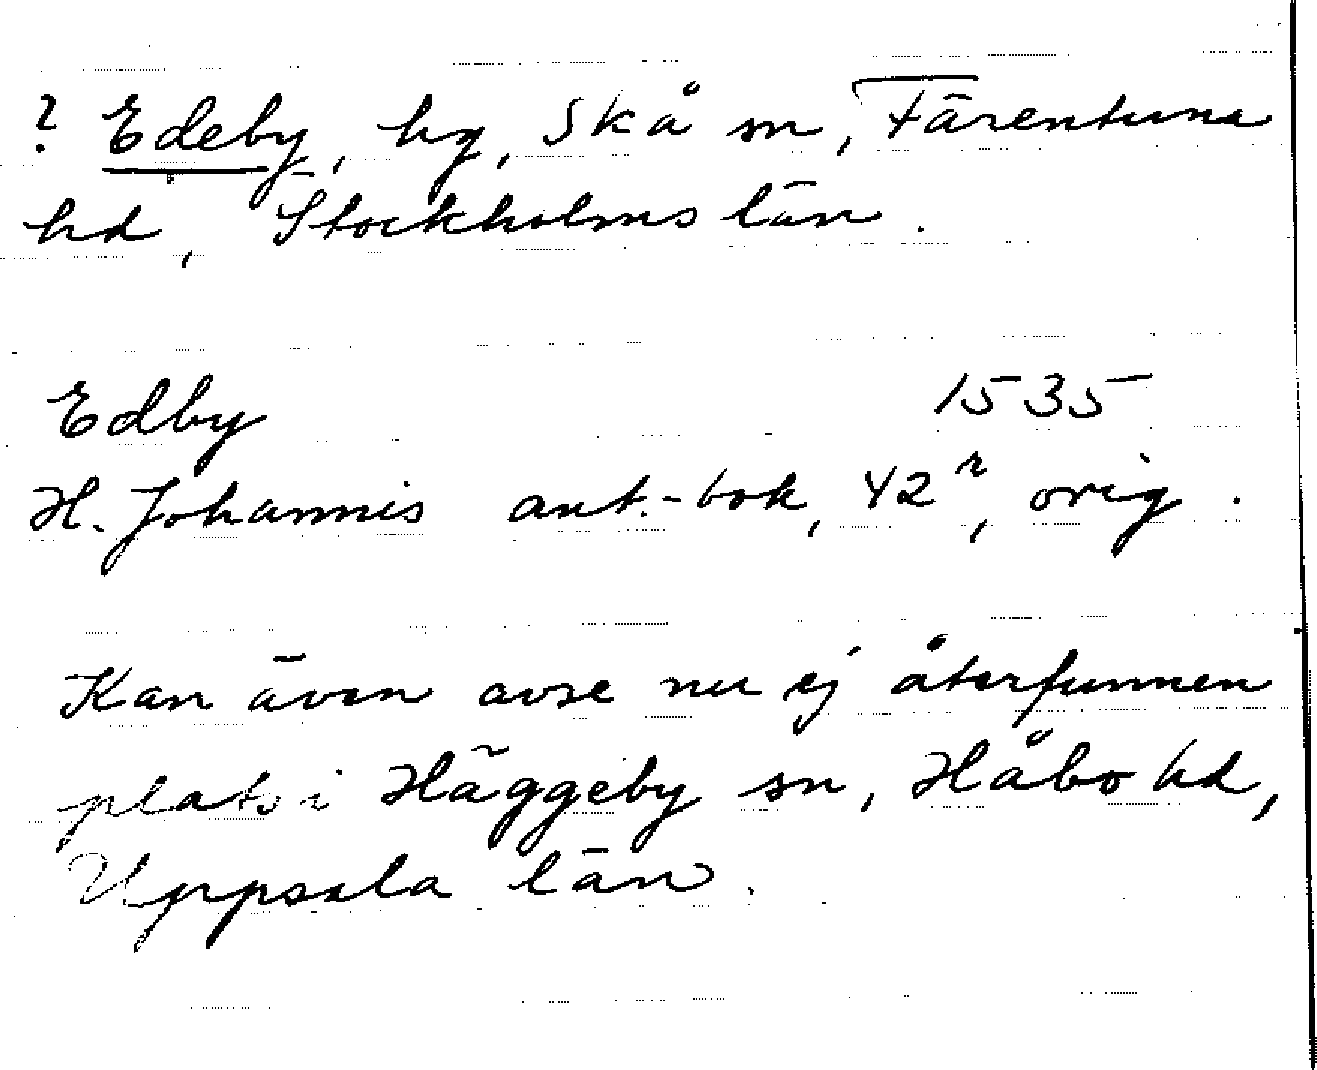 ? Edeby, hg, Skå sn, Färentuna
hd, Stockholms län.
Edby 1535
H. Johannis ant.-bok, 42r, orig.
Kan även avse nu ej återfunnen
plats i Häggeby sn, Håbo hd,
Uppsala län.